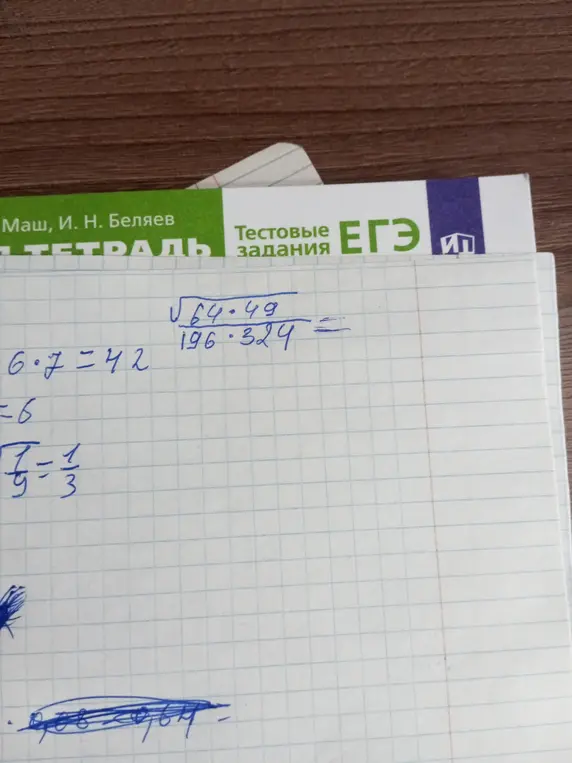 Маш, И. Н. Беляев
ТЕТРАДЬ
Тестовые
задания
ЕГЭ
√64·49
196·324 =
6·7=42
=6
√1/9=1/3